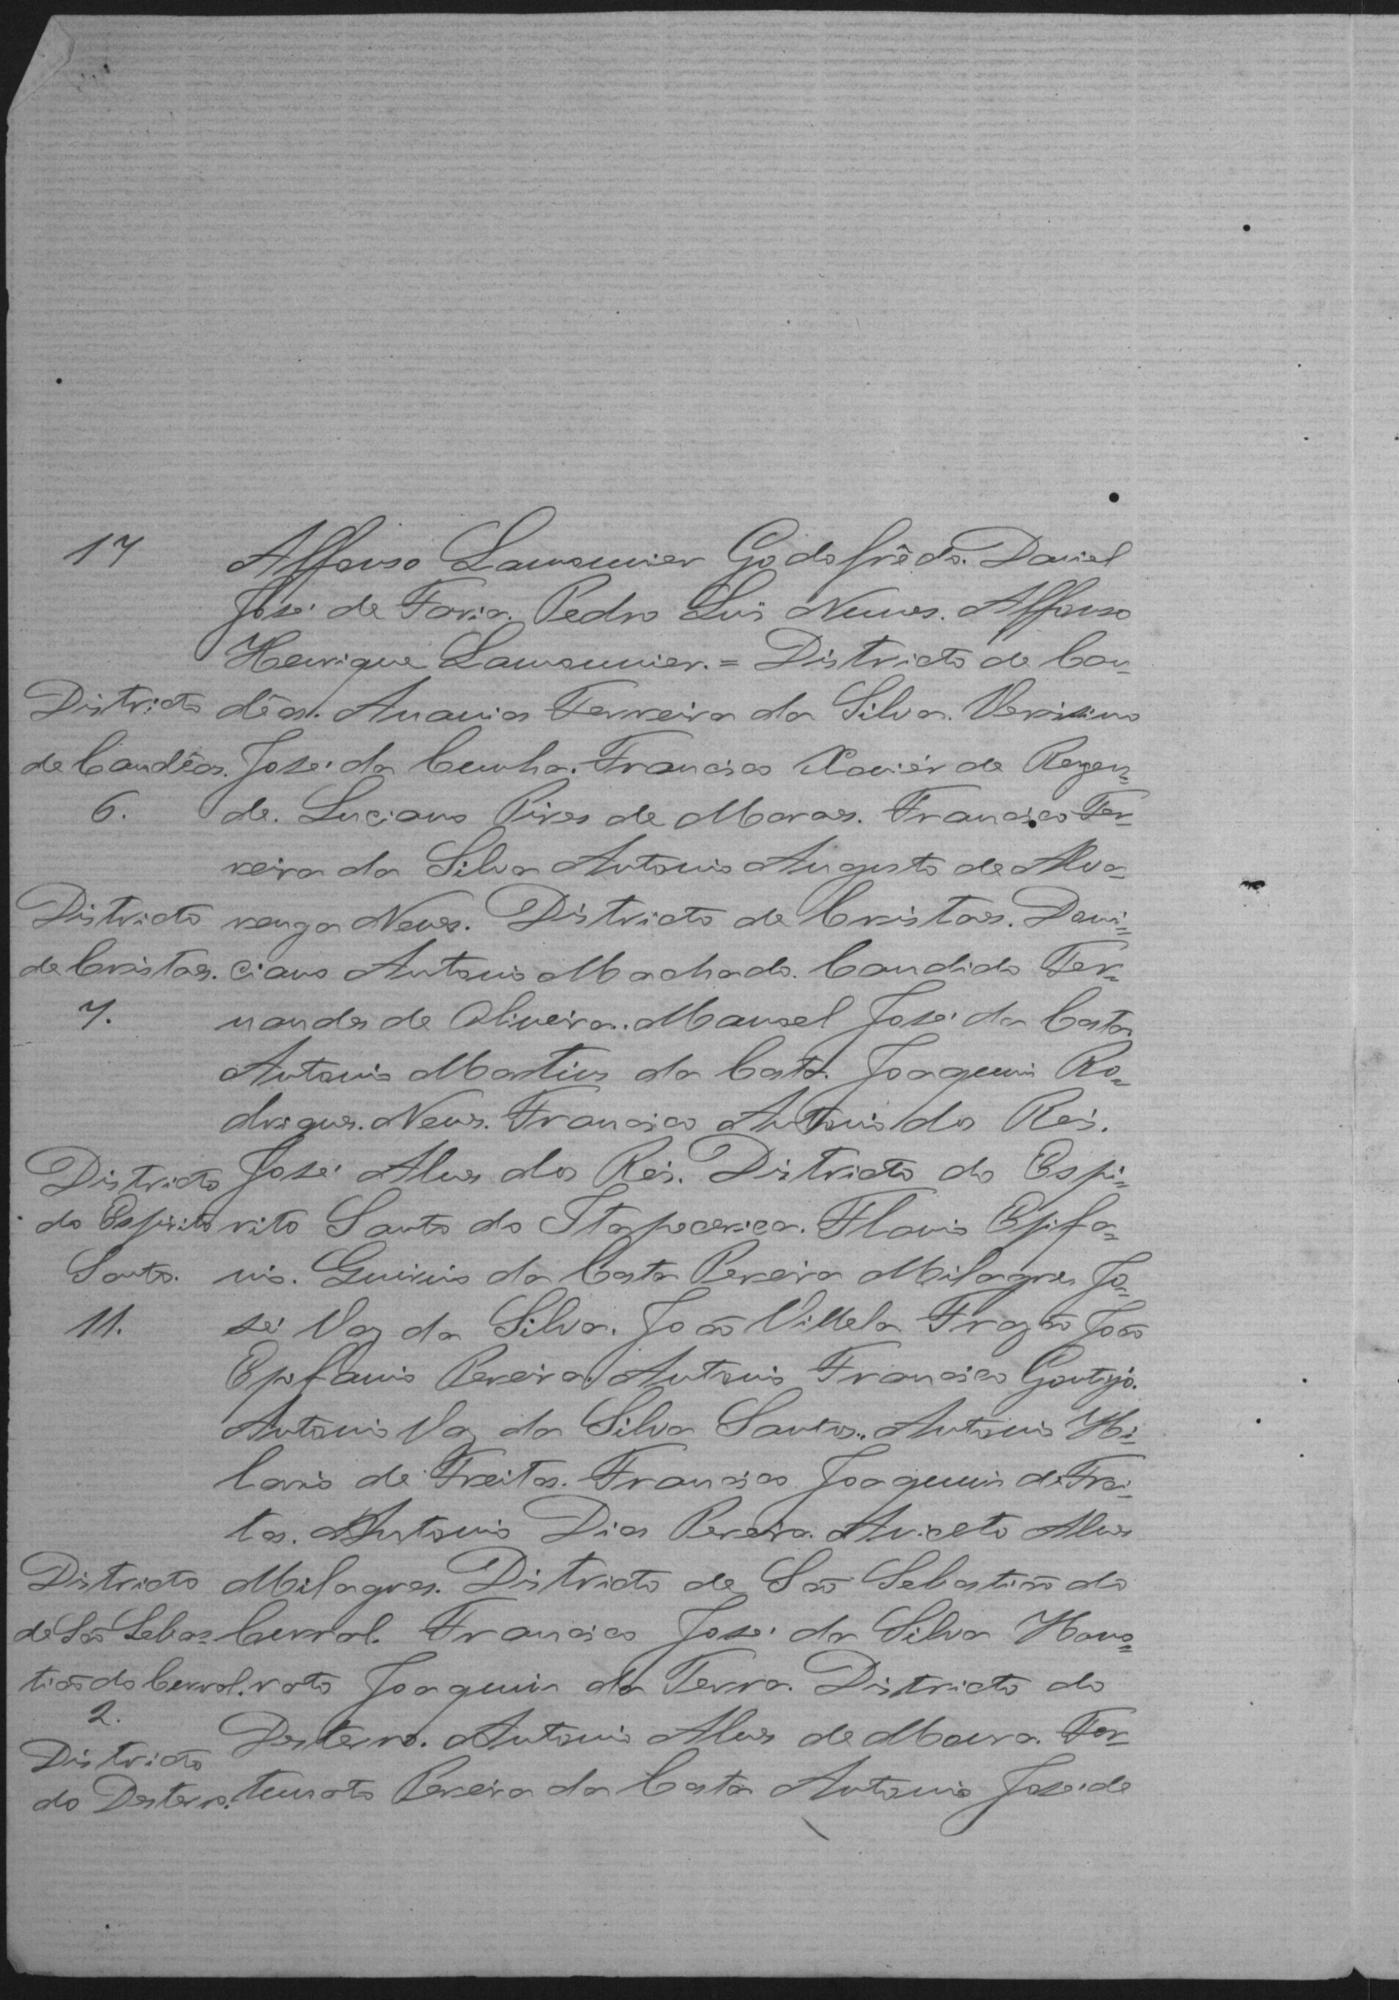 17 Affonso Lamounier Godofrêdo. Daniel
José de Faria. Pedro Luis Nunes. Affonso
Henrique Lamounier. = Districto de Can=
Districto dêas. Ananias Ferreira da Silva. Verissimo
de Candêas. José da Cunha. Francisco Xavier de Rezen=
6. de. Luciano Pires de Moraes. Francisco Fer=
reira da Silva Antonio Augusto de Alva=
Districto renga Neves. Districto de Cristaes. Domi=
de Cristaes. ciano Antonio Machado. Candido Fer=
7. nandes de Oliveira. Manoel José da Costa
Antonio Martins da Costa. Joaquim Ro=
drigues Neves. Francisco Antonio dos Reis.
Districto José Alves dos Reis. Districto do Espi=
do Espirito rito Santo do Itapecerica. Flavio Epifa=
Santo. nio. Quirino da Costa Pereira Milagres Jo=
11. sé Vaz da Silva. João Villela Frazão João
Epifanio Pereira. Antonio Francisco Gontijo.
Antonio Vaz da Silva Santos. Antonio Hi=
lario de Freitas. Francisco Joaquim de Frei=
tas. Antonio Dias Pereira. Aniceto Alves
Districto Milagres. Districto de São Sebastião do
de São Sebas= Curral. Francisco José da Silva Hono=
tião do Curral. rato Joaquim da Terra. Districto do
2. Desterro. Antonio Alves de Moura. For=
Districto
do Desterro. tunato Pereira da Costa Antonio José de